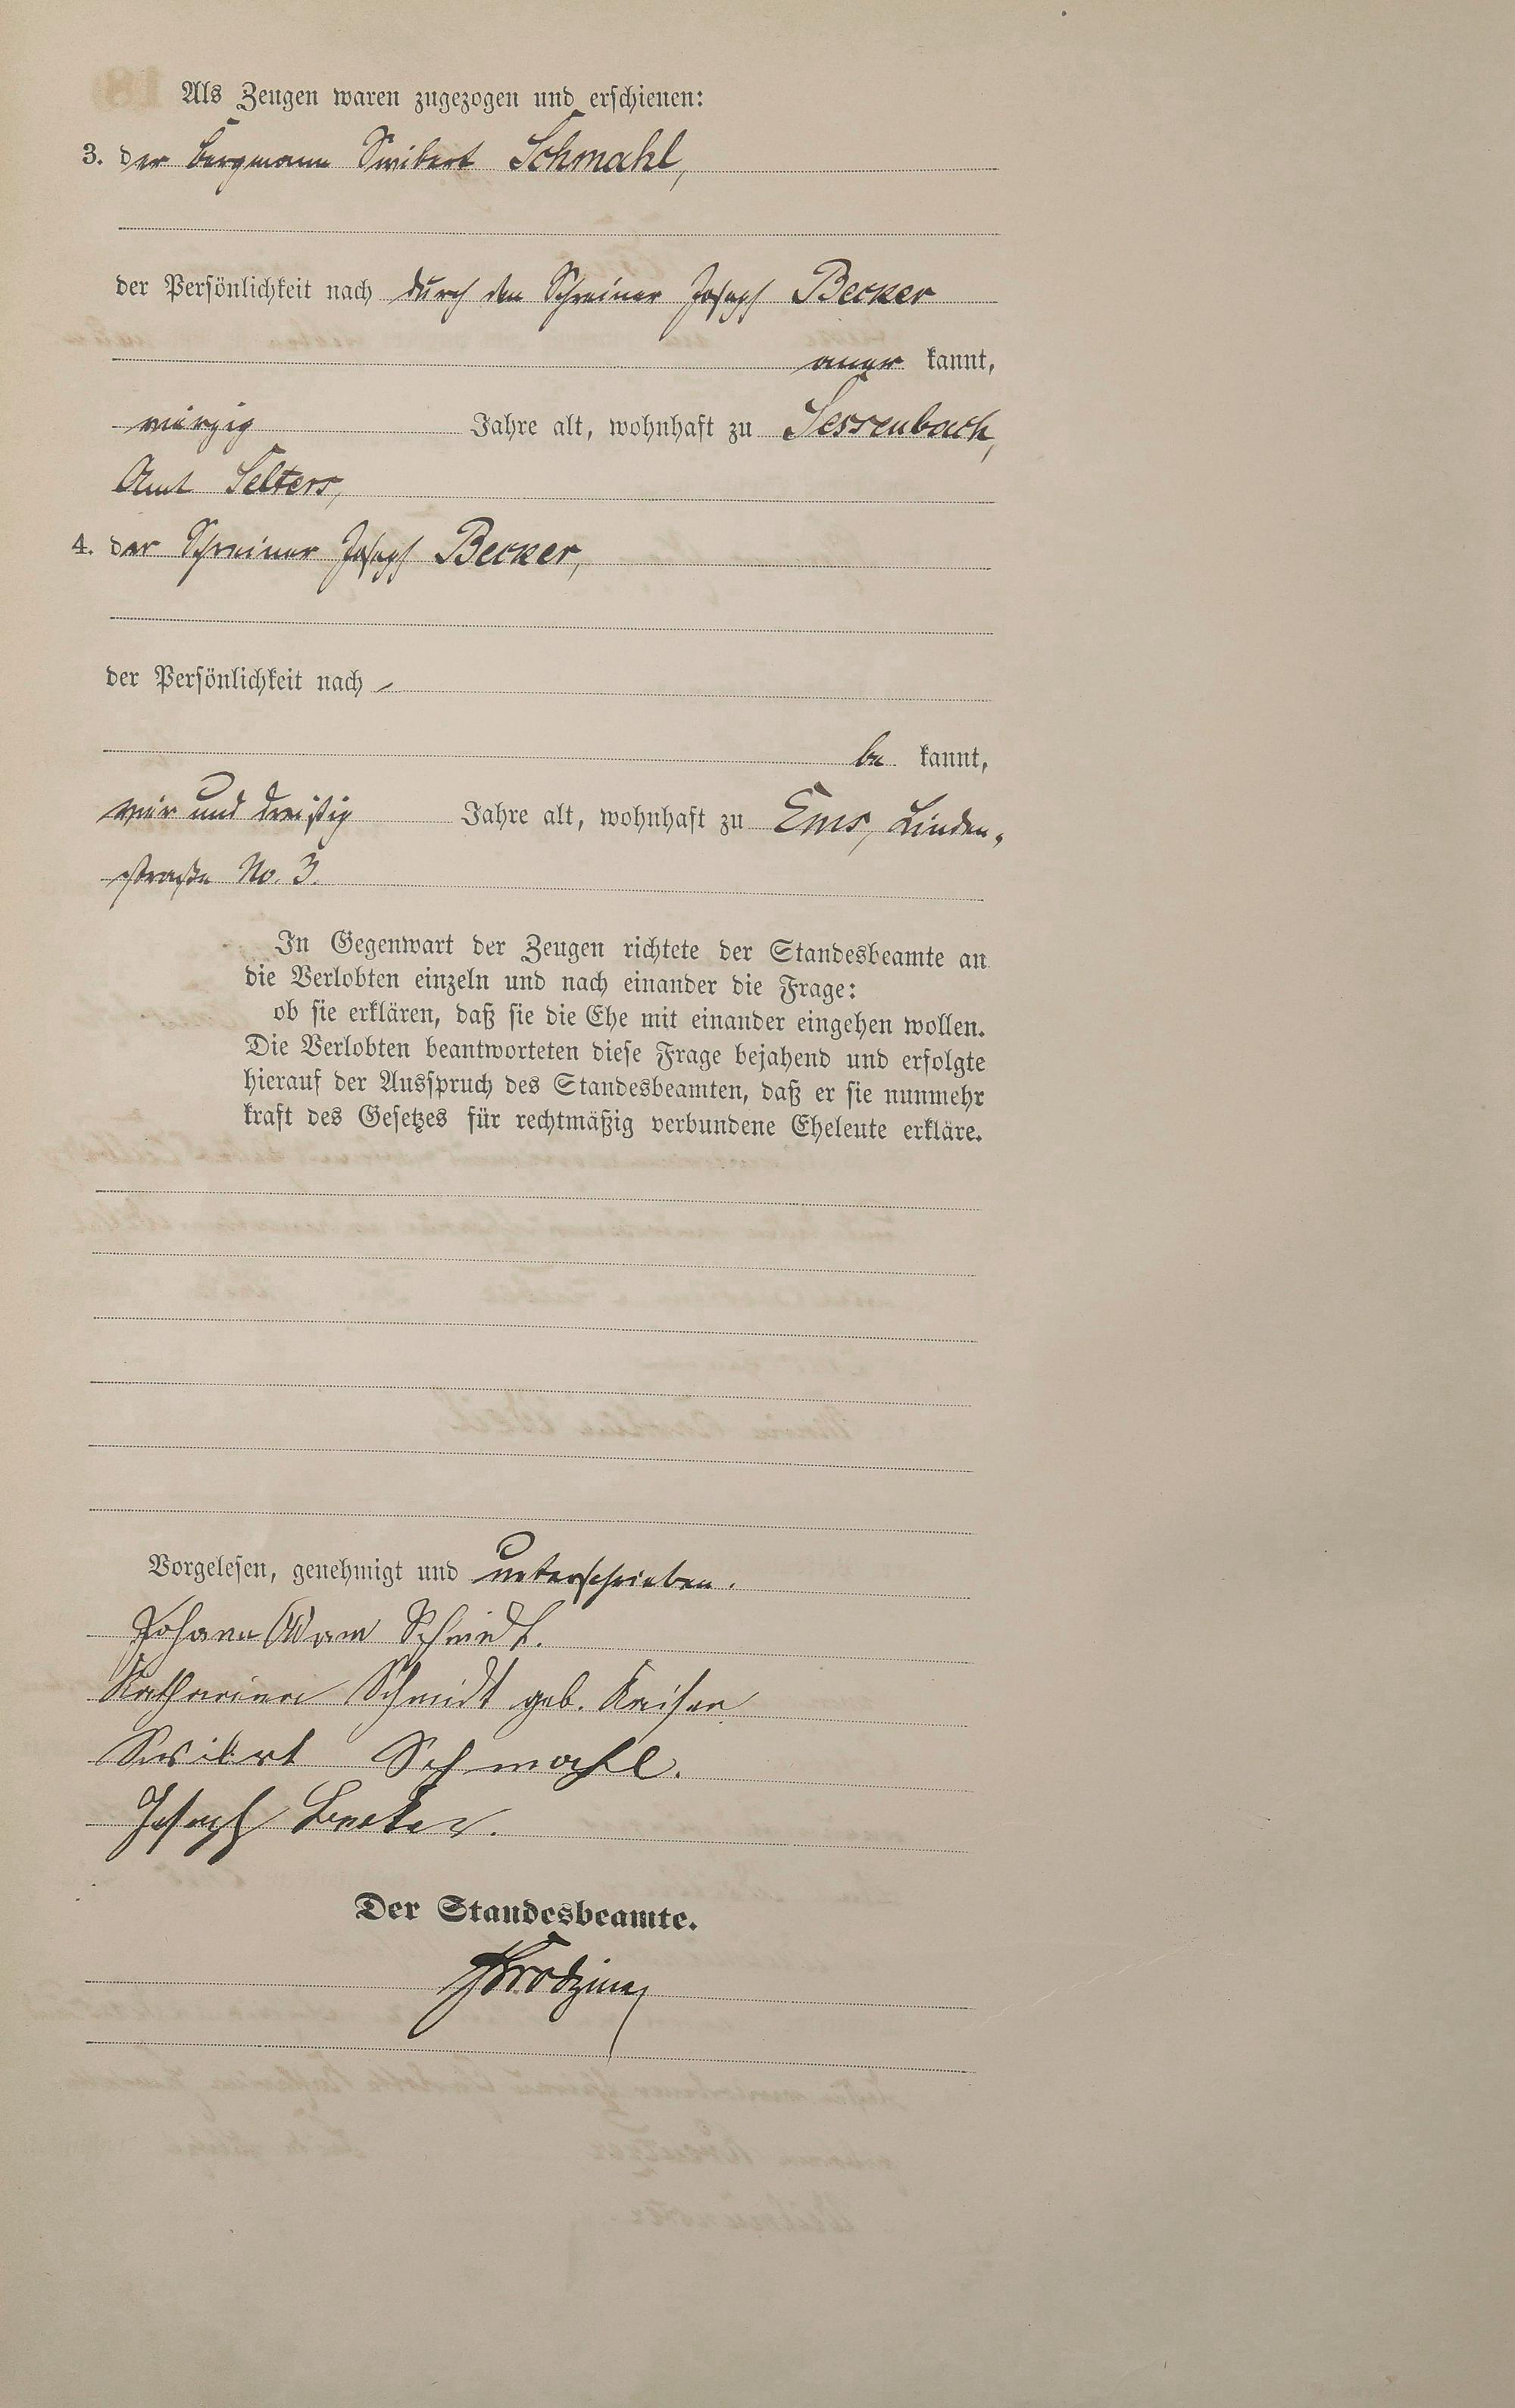 Als Zeugen waren zugezogen und erschienen:
3. der Bergmann Swibert Schmahl,
der Persönlichkeit nach durch den Schreiner Joseph Becker
aner kannt,
vierzig Jahre alt, wohnhaft zu Sessenbach,
Amt Selters,
4. der Schreiner Joseph Becker,
der Persönlichkeit nach -
be kannt,
vier und dreißig Jahre alt, wohnhaft zu Ems, Linden-
straße No. 3.
In Gegenwart der Zeugen richtete der Standesbeamte an
die Verlobten einzeln und nach einander die Frage:
ob sie erklären, daß sie die Ehe mit einander eingehen wollen.
Die Verlobten beantworteten diese Frage bejahend und erfolgte
hierauf der Ausspruch des Standesbeamten, daß er sie nunmehr
kraft des Gesetzes für rechtmäßig verbundene Eheleute erkläre.
Vorgelesen, genehmigt und unterschrieben.
Johann Adam Schmidt.
Katharina Schmidt geb. Kaiser
Swibert Schmahl.
Joseph Becker.
Der Standesbeamte.